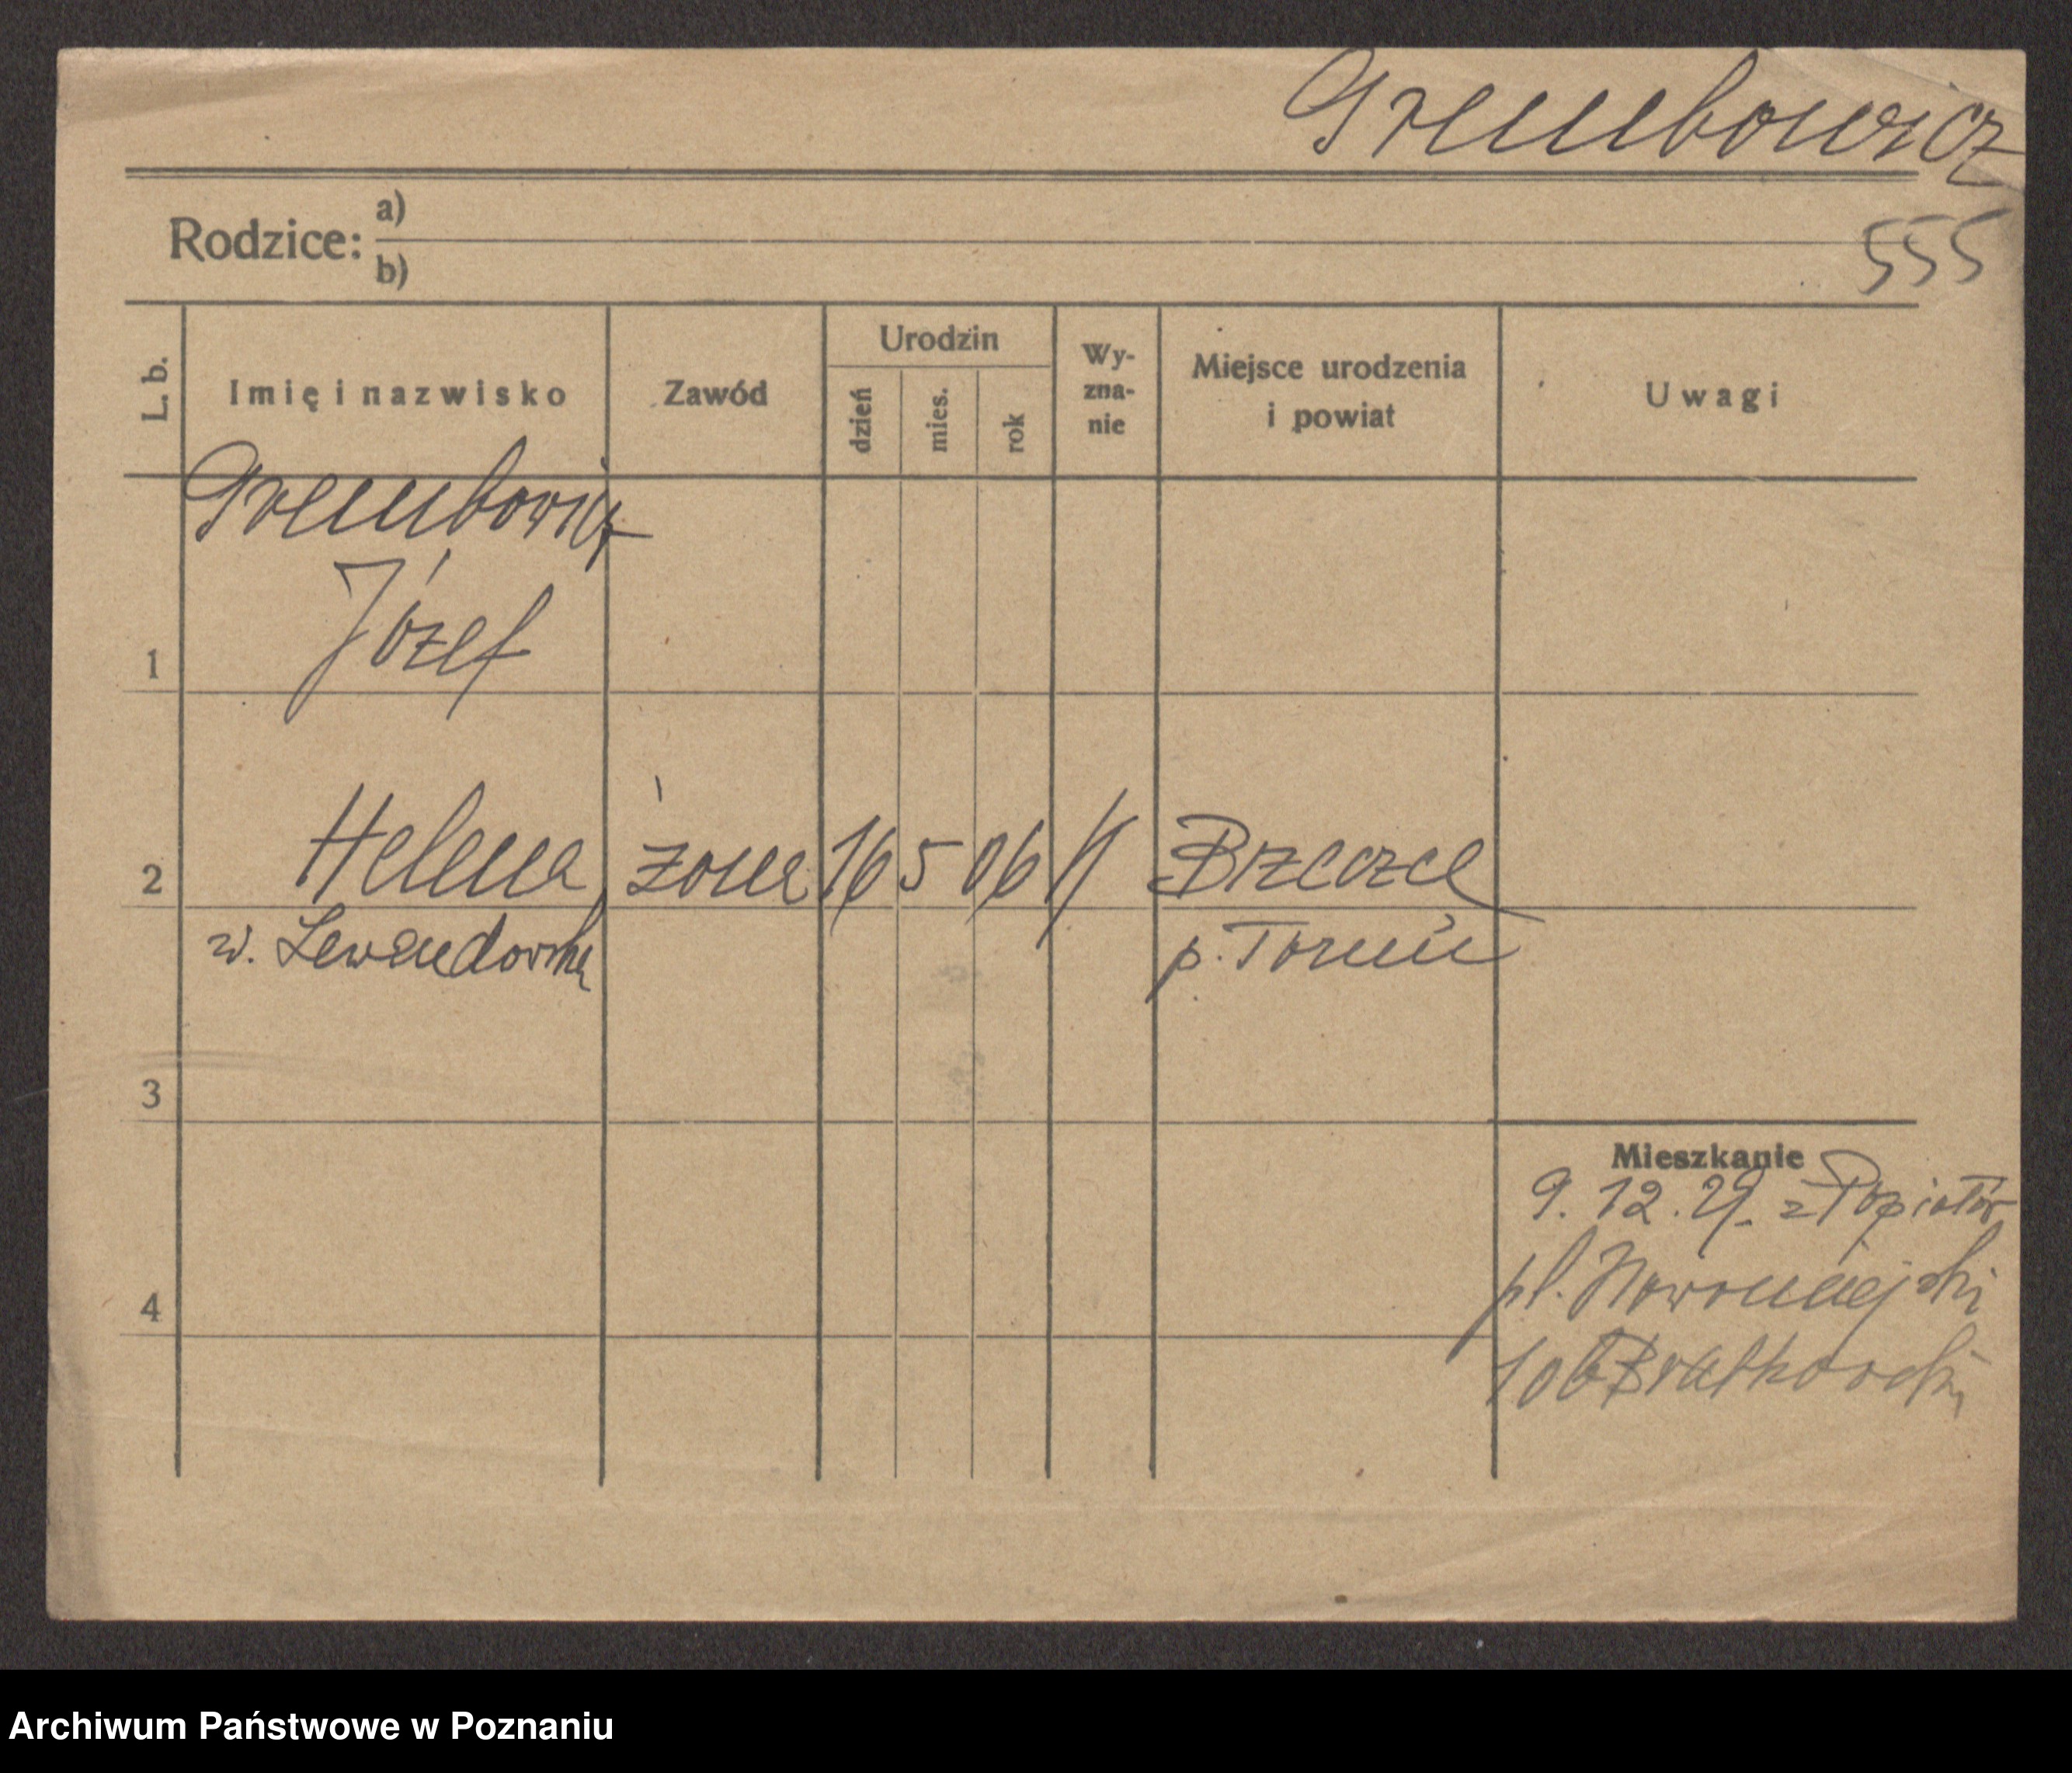 Grembowicz
Rodzice:
a)
b)
555
L. b.
Imię i nazwisko
Zawód
Urodzin
dzień
mies.
rok
Wy-
zna-
nie
Miejsce urodzenia
i powiat
Uwagi
Grembowicz
Józef
1
2
Helena
żona
16
5
06
Brzeczce
Lewandowska
p. Toruń
3
Mieszkanie
9. 12. 29. z
4
pl. Nowomiejski
10b Bratkowski
Archiwum Państwowe w Poznaniu